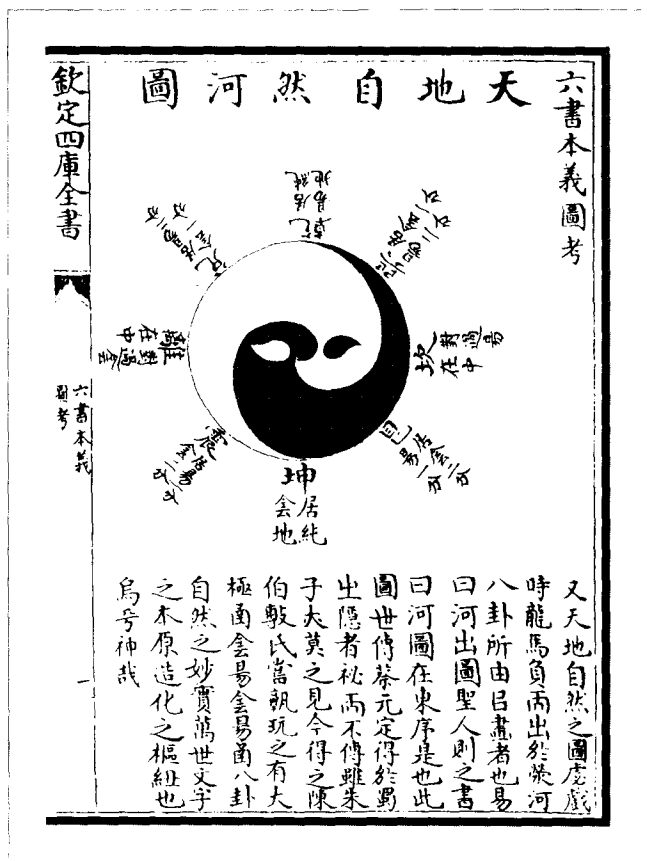 六書本義圖考
天地自然河圖
乾
居純
昜地
兌
居昜二分
侌一分
離
對過侌
在中
震
居昜一分
侌二分
坤
居純
侌地
艮
居侌二分
昜一分
坎
對過昜
在中
巽
居侌一分
昜二分
又天地自然之圖虙戲
時龍馬負而出於滎河
八卦所由㠯畫者也易
曰河出圖聖人則之書
曰河圖在東序是也此
圖世傳蔡元定得於蜀
㞢隱者祕而不傳雖朱
子亦莫之見今得之陳
伯敷氏嘗熟玩之有大
極函侌昜侌昜函八卦
自然之妙實萬世文字
之本原造化之樞紐也
烏乎神哉
欽定四庫全書
六書本義
圖考
一